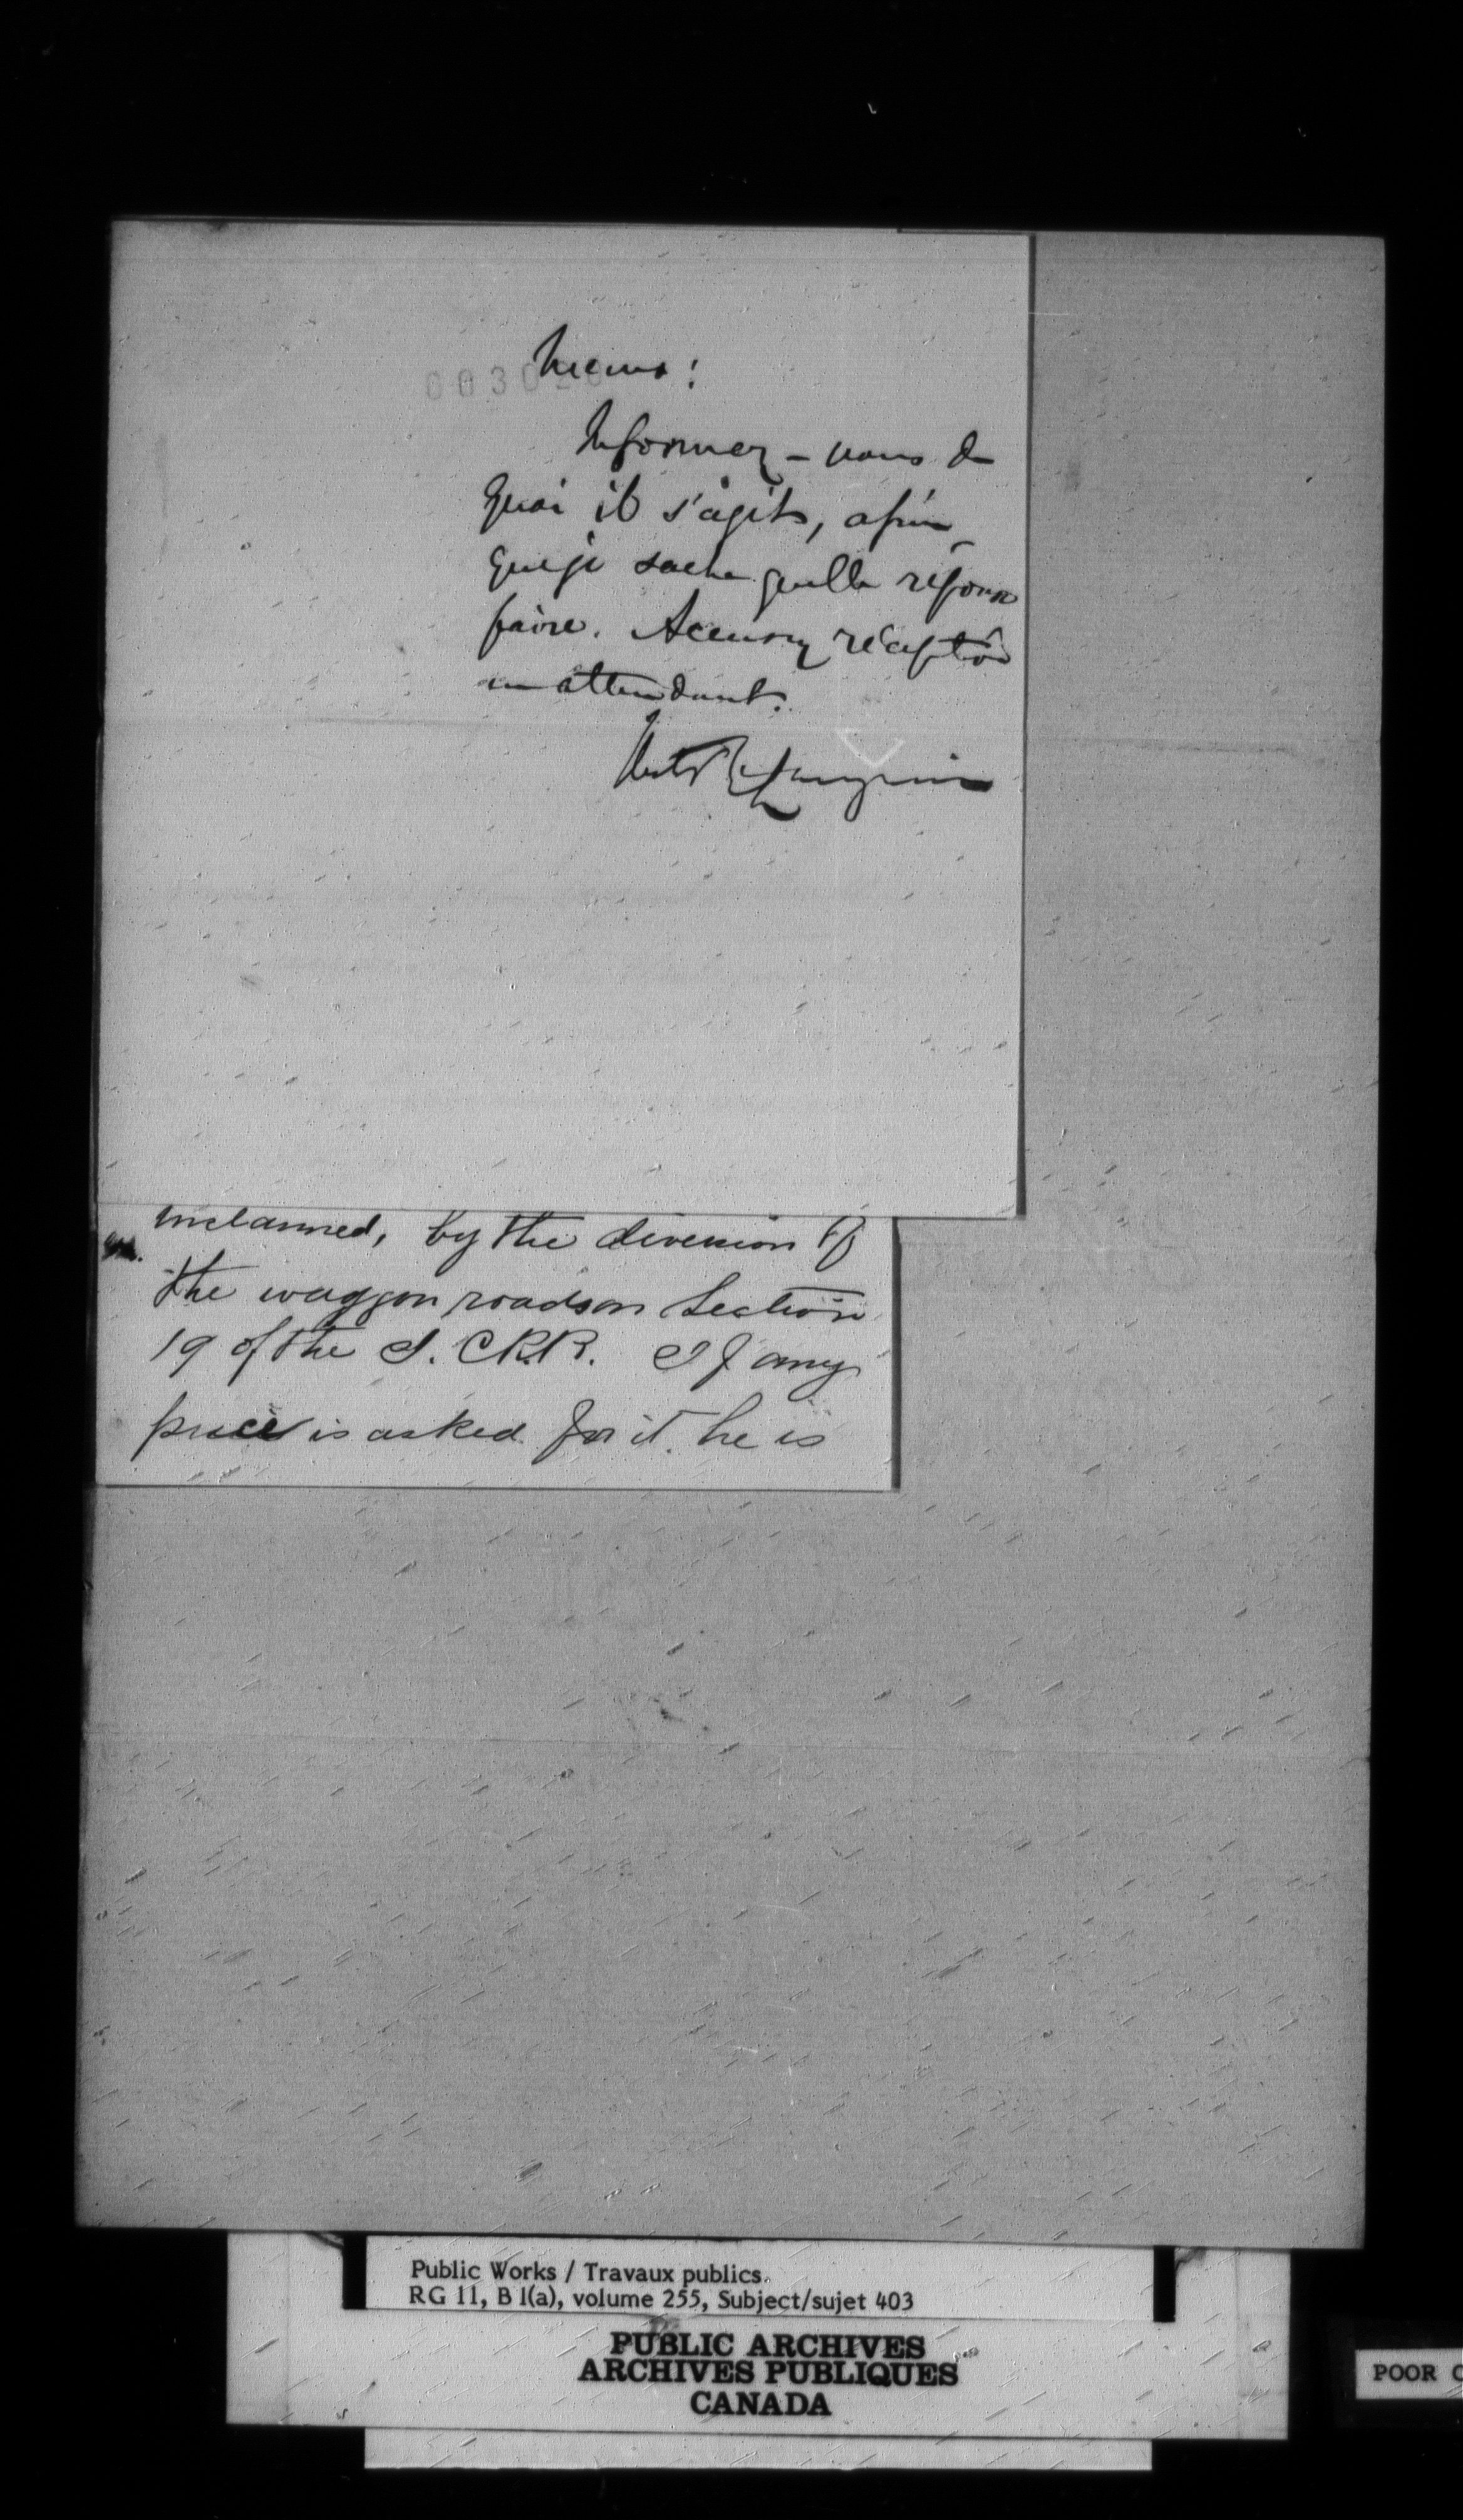 Memo:
Informez-vous de
quoi il s'agit, afin
que je sache quelle réponse
faire. Accusez réception
en attendant.
Hector L. Langevin
unclaimed, by the diversion of
the waggon roads on Section
19 of the I.C.R.R. If any
price is asked for it, he is
Public Works / Travaux publics.
RG 11, B 1(a), volume 255, Subject/sujet 403
PUBLIC ARCHIVES
ARCHIVES PUBLIQUES
CANADA
POOR